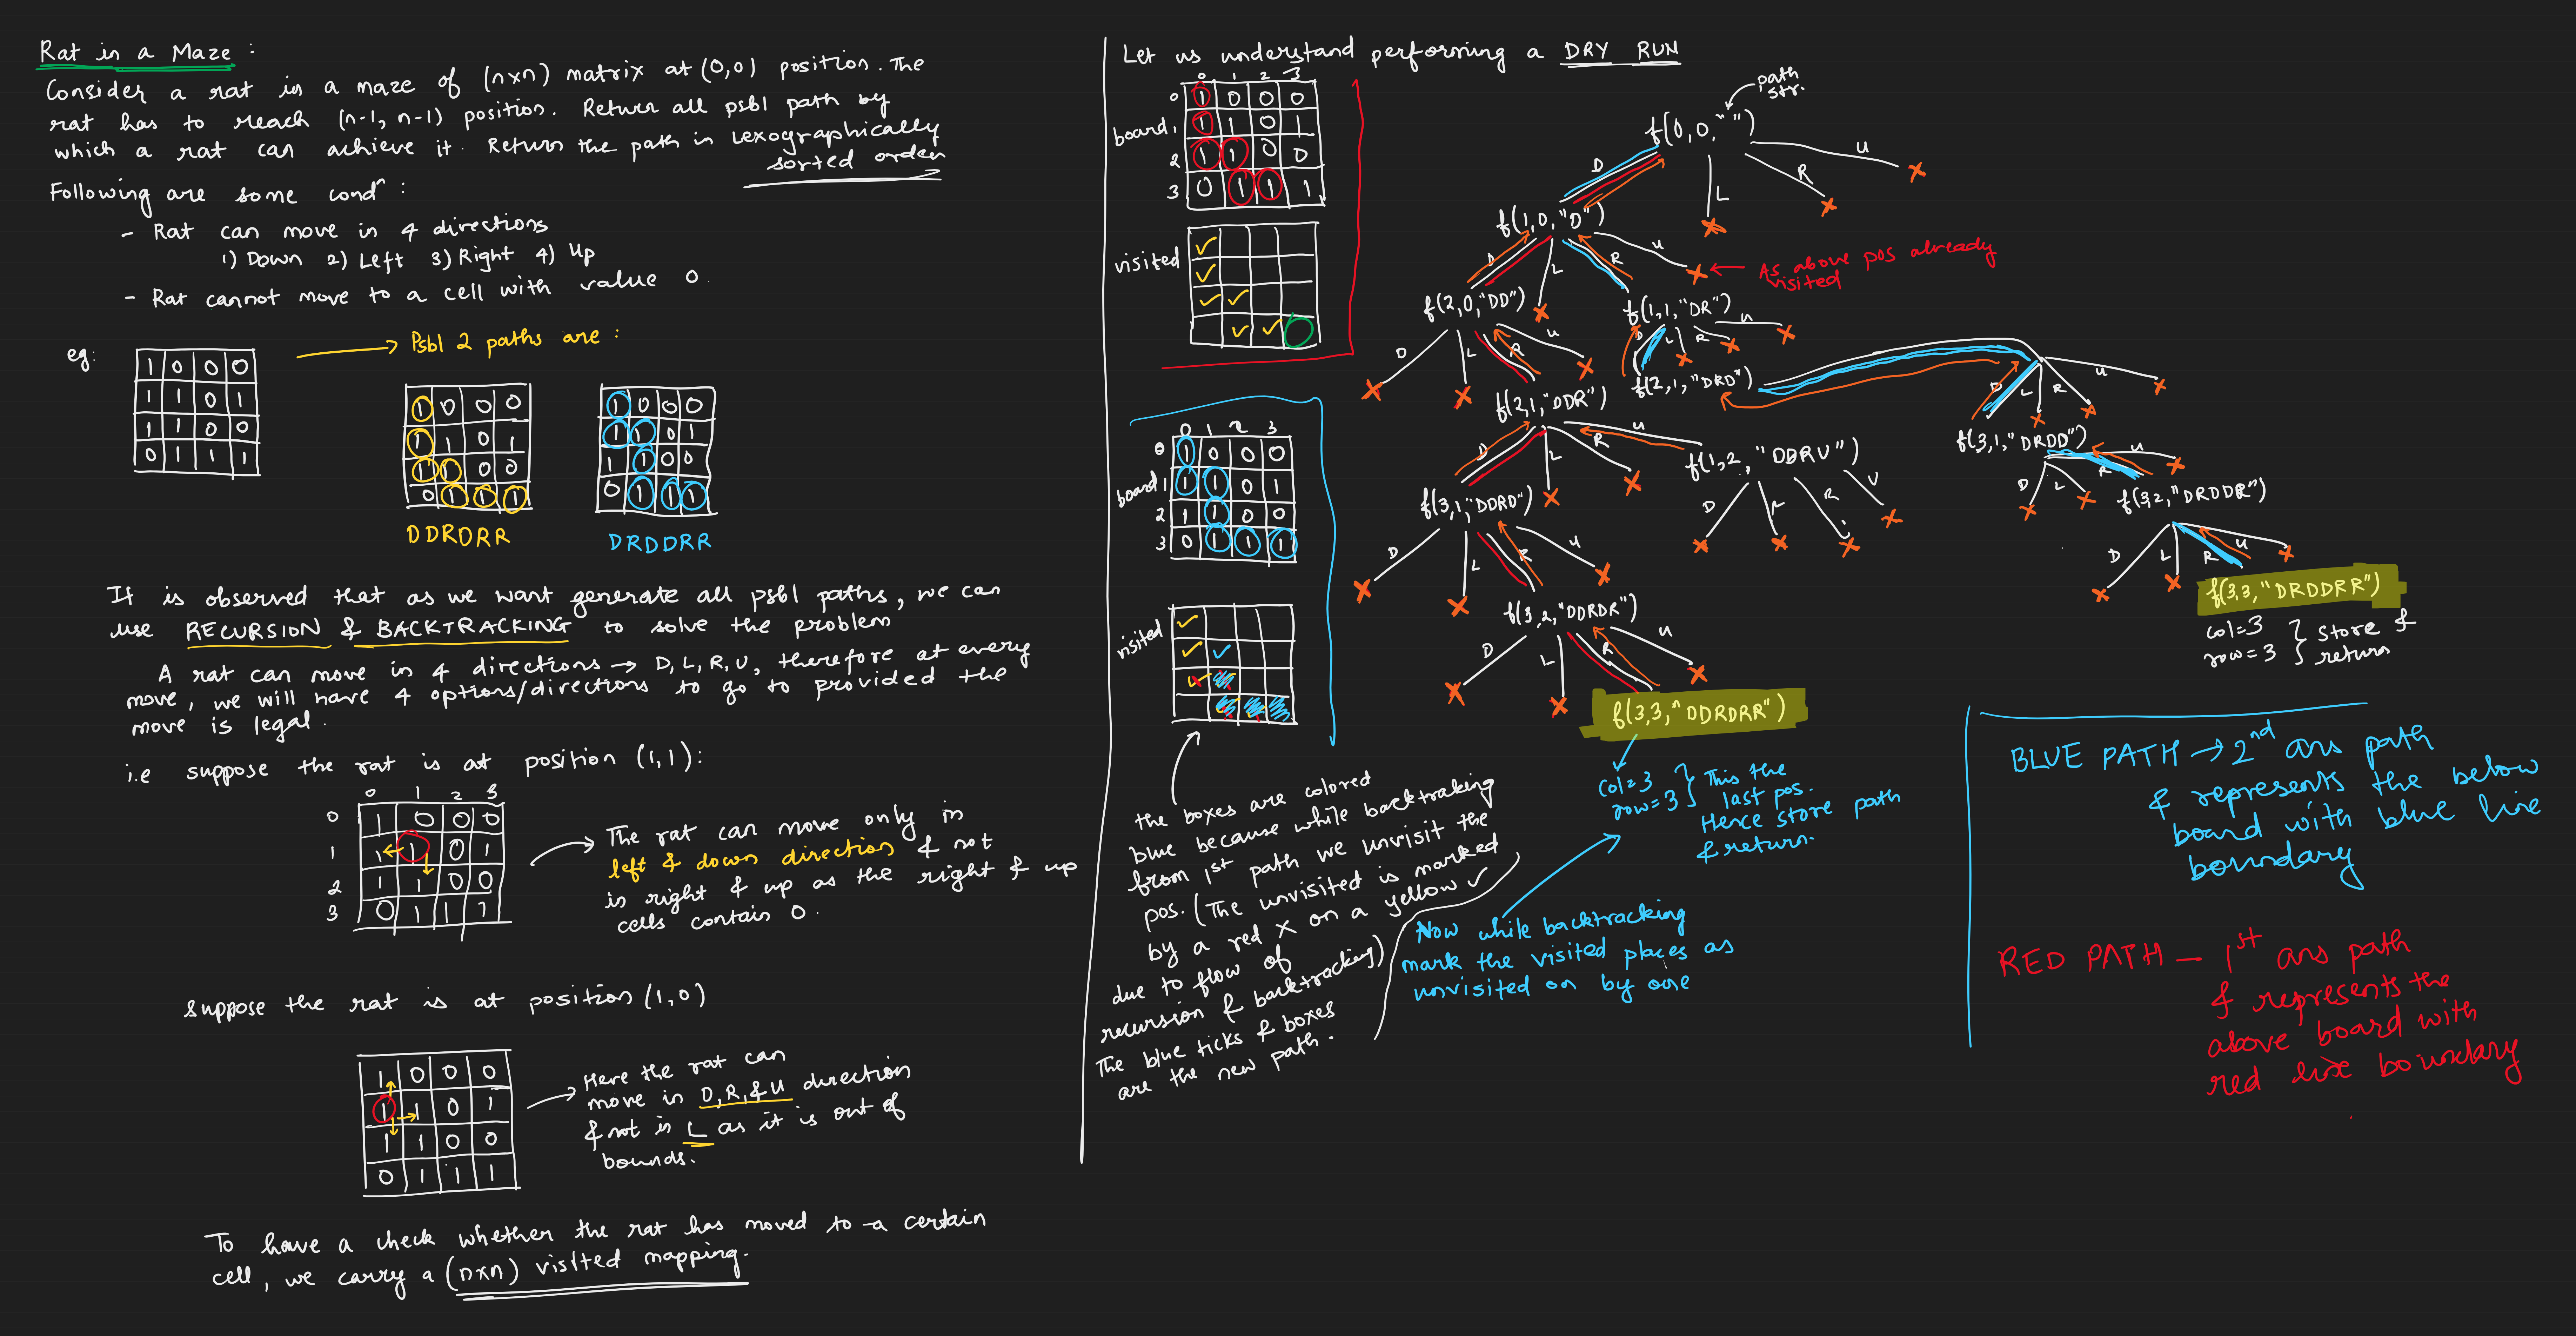 Rat in a Maze :
Consider a rat in a maze of (n×n) matrix at (0,0) position. The
rat has to reach (n-1, n-1) position. Return all psbl path by
which a rat can achieve it. Return the path in Lexographically
sorted order
Following are some condⁿ :
- Rat can move in 4 directions
1) Down 2) Left 3) Right 4) Up
- Rat cannot move to a cell with value 0.
eg:
1 0 0 0
1 1 0 1
1 1 0 0
0 1 1 1
Psbl 2 paths are :
1 0 0 0
1 1 0 1
1 1 0 0
0 1 1 1
DDRDRR
1 0 0 0
1 1 0 1
1 1 0 0
0 1 1 1
DRDDRR
It is observed that as we want generate all psbl paths, we can
use RECURSION & BACKTRACKING to solve the problem
A rat can move in 4 directions → D, L, R, U, therefore at every
move, we will have 4 options/directions to go to provided the
move is legal.
i.e suppose the rat is at position (1,1):
0 1 2 3
0 1 0 0 0
1 1 1 0 1
2 1 1 0 0
3 0 1 1 1
The rat can move only in
left & down direction & not
in right & up as the right & up
cells contain 0.
Suppose the rat is at position (1,0)
1 0 0 0
1 1 0 1
1 1 0 0
0 1 1 1
Here the rat can
move in D, R, & U direction
& not in L as it is out of
bounds.
To have a check whether the rat has moved to a certain
cell, we carry a (n×n) visited mapping.
Let us understand performing a DRY RUN
0 1 2 3
board
0 1 0 0 0
1 1 1 0 1
2 1 1 0 0
3 0 1 1 1
visited
board
0 1 2 3
0 1 0 0 0
1 1 1 0 1
2 1 1 0 0
3 0 1 1 1
visited
the boxes are colored
blue because while backtraking
from 1st path we unvisit the
pos. (The unvisited is marked
by a red × on a yellow ✓
due to flow of
recursion & backtracking)
The blue ticks & boxes
are the new path.
path
str.
f(0,0,"")
D L R U
f(1,0,"D")
D L R U
As above pos already
visited
f(2,0,"DD")
D L R U
f(1,1,"DR")
D L R U
f(2,1,"DRD")
D L R U
f(2,1,"DDR")
D L R U
f(3,1,"DRDD")
D L R U
f(1,2,"DDRU")
D R U
f(3,1,"DDRD")
D L R U
f(3,2,"DRDDR")
D L R U
f(3,2,"DDRDR")
D L R U
f(3,3,"DRDDRR")
col=3
row=3
store &
return
f(3,3,"DDRDRR")
col=3
row=3
This the
last pos.
Hence store path
& return.
Now while backtracking
mark the visited places as
unvisited on by one
BLUE PATH → 2nd ans path
& represents the below
board with blue line
boundary
RED PATH – 1st ans path
& represents the
above board with
red line boundary